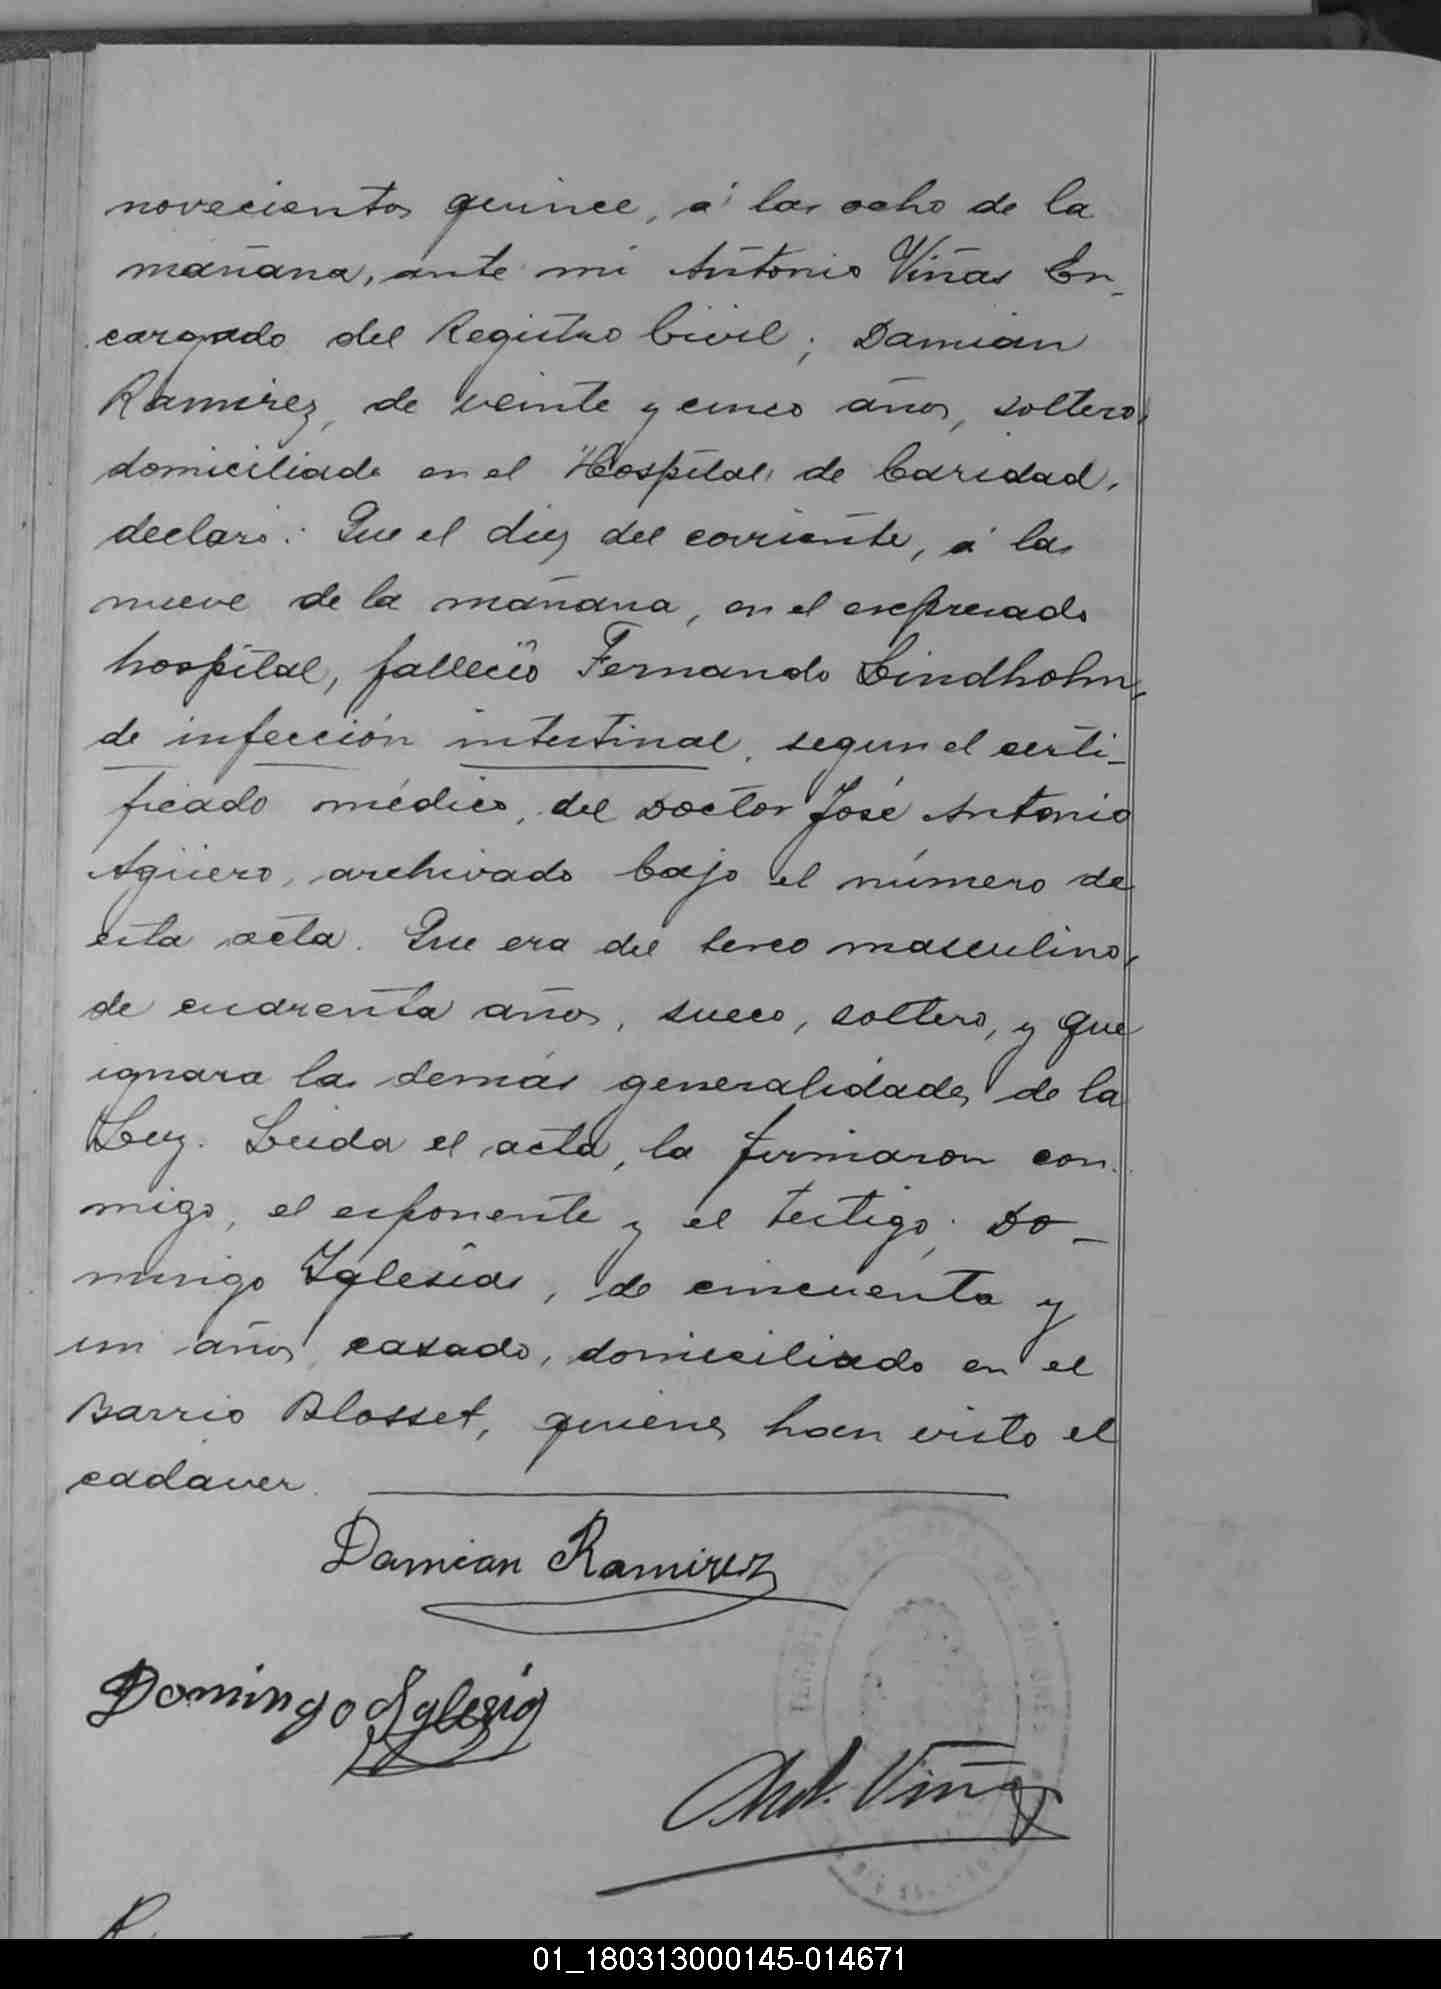 novecientos quince, á las ocho de la
mañana, ante mi Antonio Viñas En-
cargado del Registro Civil; Damian
Ramirez, de veinte y cinco años, soltero,
domiciliado en el Hospital de Caridad,
declaró: Que el diez del corriente, á las
nueve de la mañana, en el expresado
hospital, falleció Fernando Lindholm,
de infección intestinal, segun el certi-
ficado médico, del Doctor José Antonio
Agüero, archivado bajo el número de
esta acta. Que era del sexo masculino,
de cuarenta años, sueco, soltero, y que
ignara las demás generalidades de la
Ley. Leida el acta, la firmaron con-
migo, el exponente y el testigo; Do-
mingo Iglesias, de cincuenta y
un años, casado, domiciliado en el
Barrio Blosset, quienes han visto el
cadaver.
Damian Ramirez
Domingo Iglesias
Ant. Viñas
01_180313000145-014671